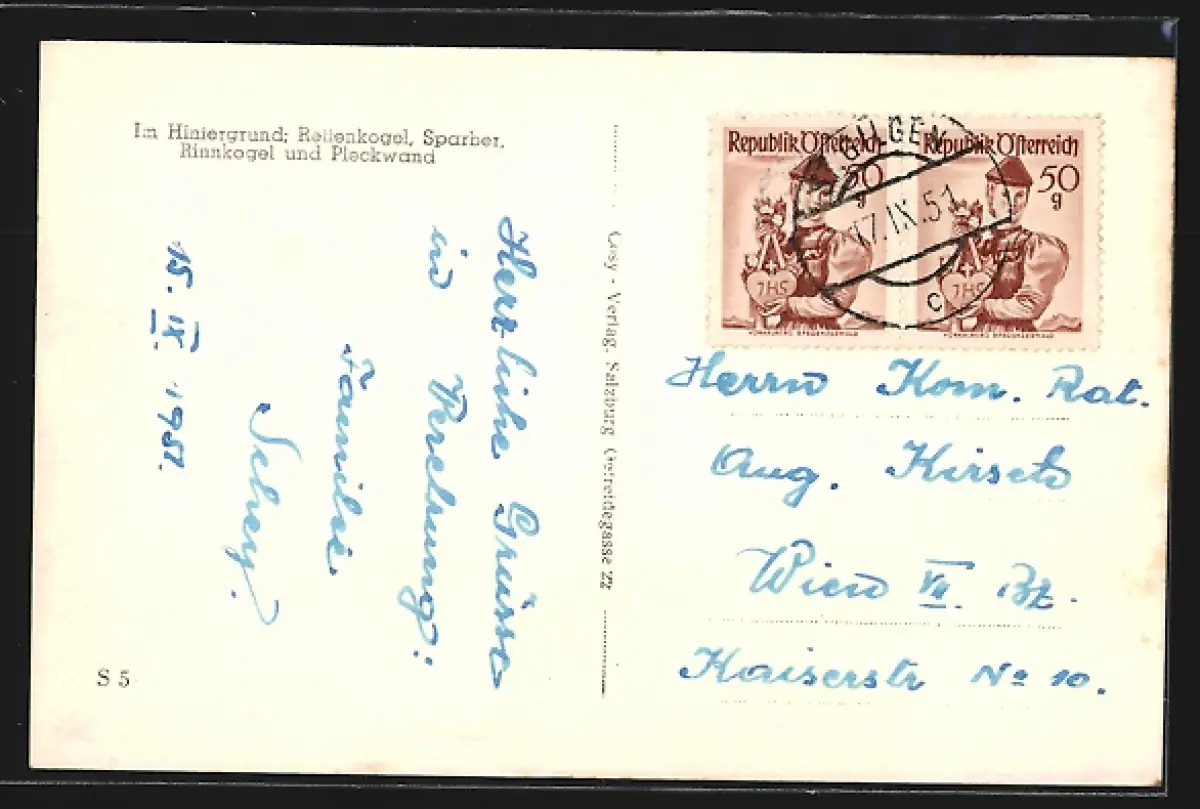 Im Hintergrund: Rettenkogel, Sparber,
Rinnkogel und Pleckwand
Herzliche Grüsse
in Verehrung:
Familie
15. IX. 1951.
S 5
Cosy - Verlag, Salzburg Getreidegasse 22
Republik Österreich
50
g
JHS
Republik Österreich
50
g
JHS
GILGEN
17.IX.51
c
Herrn Kom. Rat.
Aug. Kirsch
Wien VII. Bz.
Kaiserstr No 10.